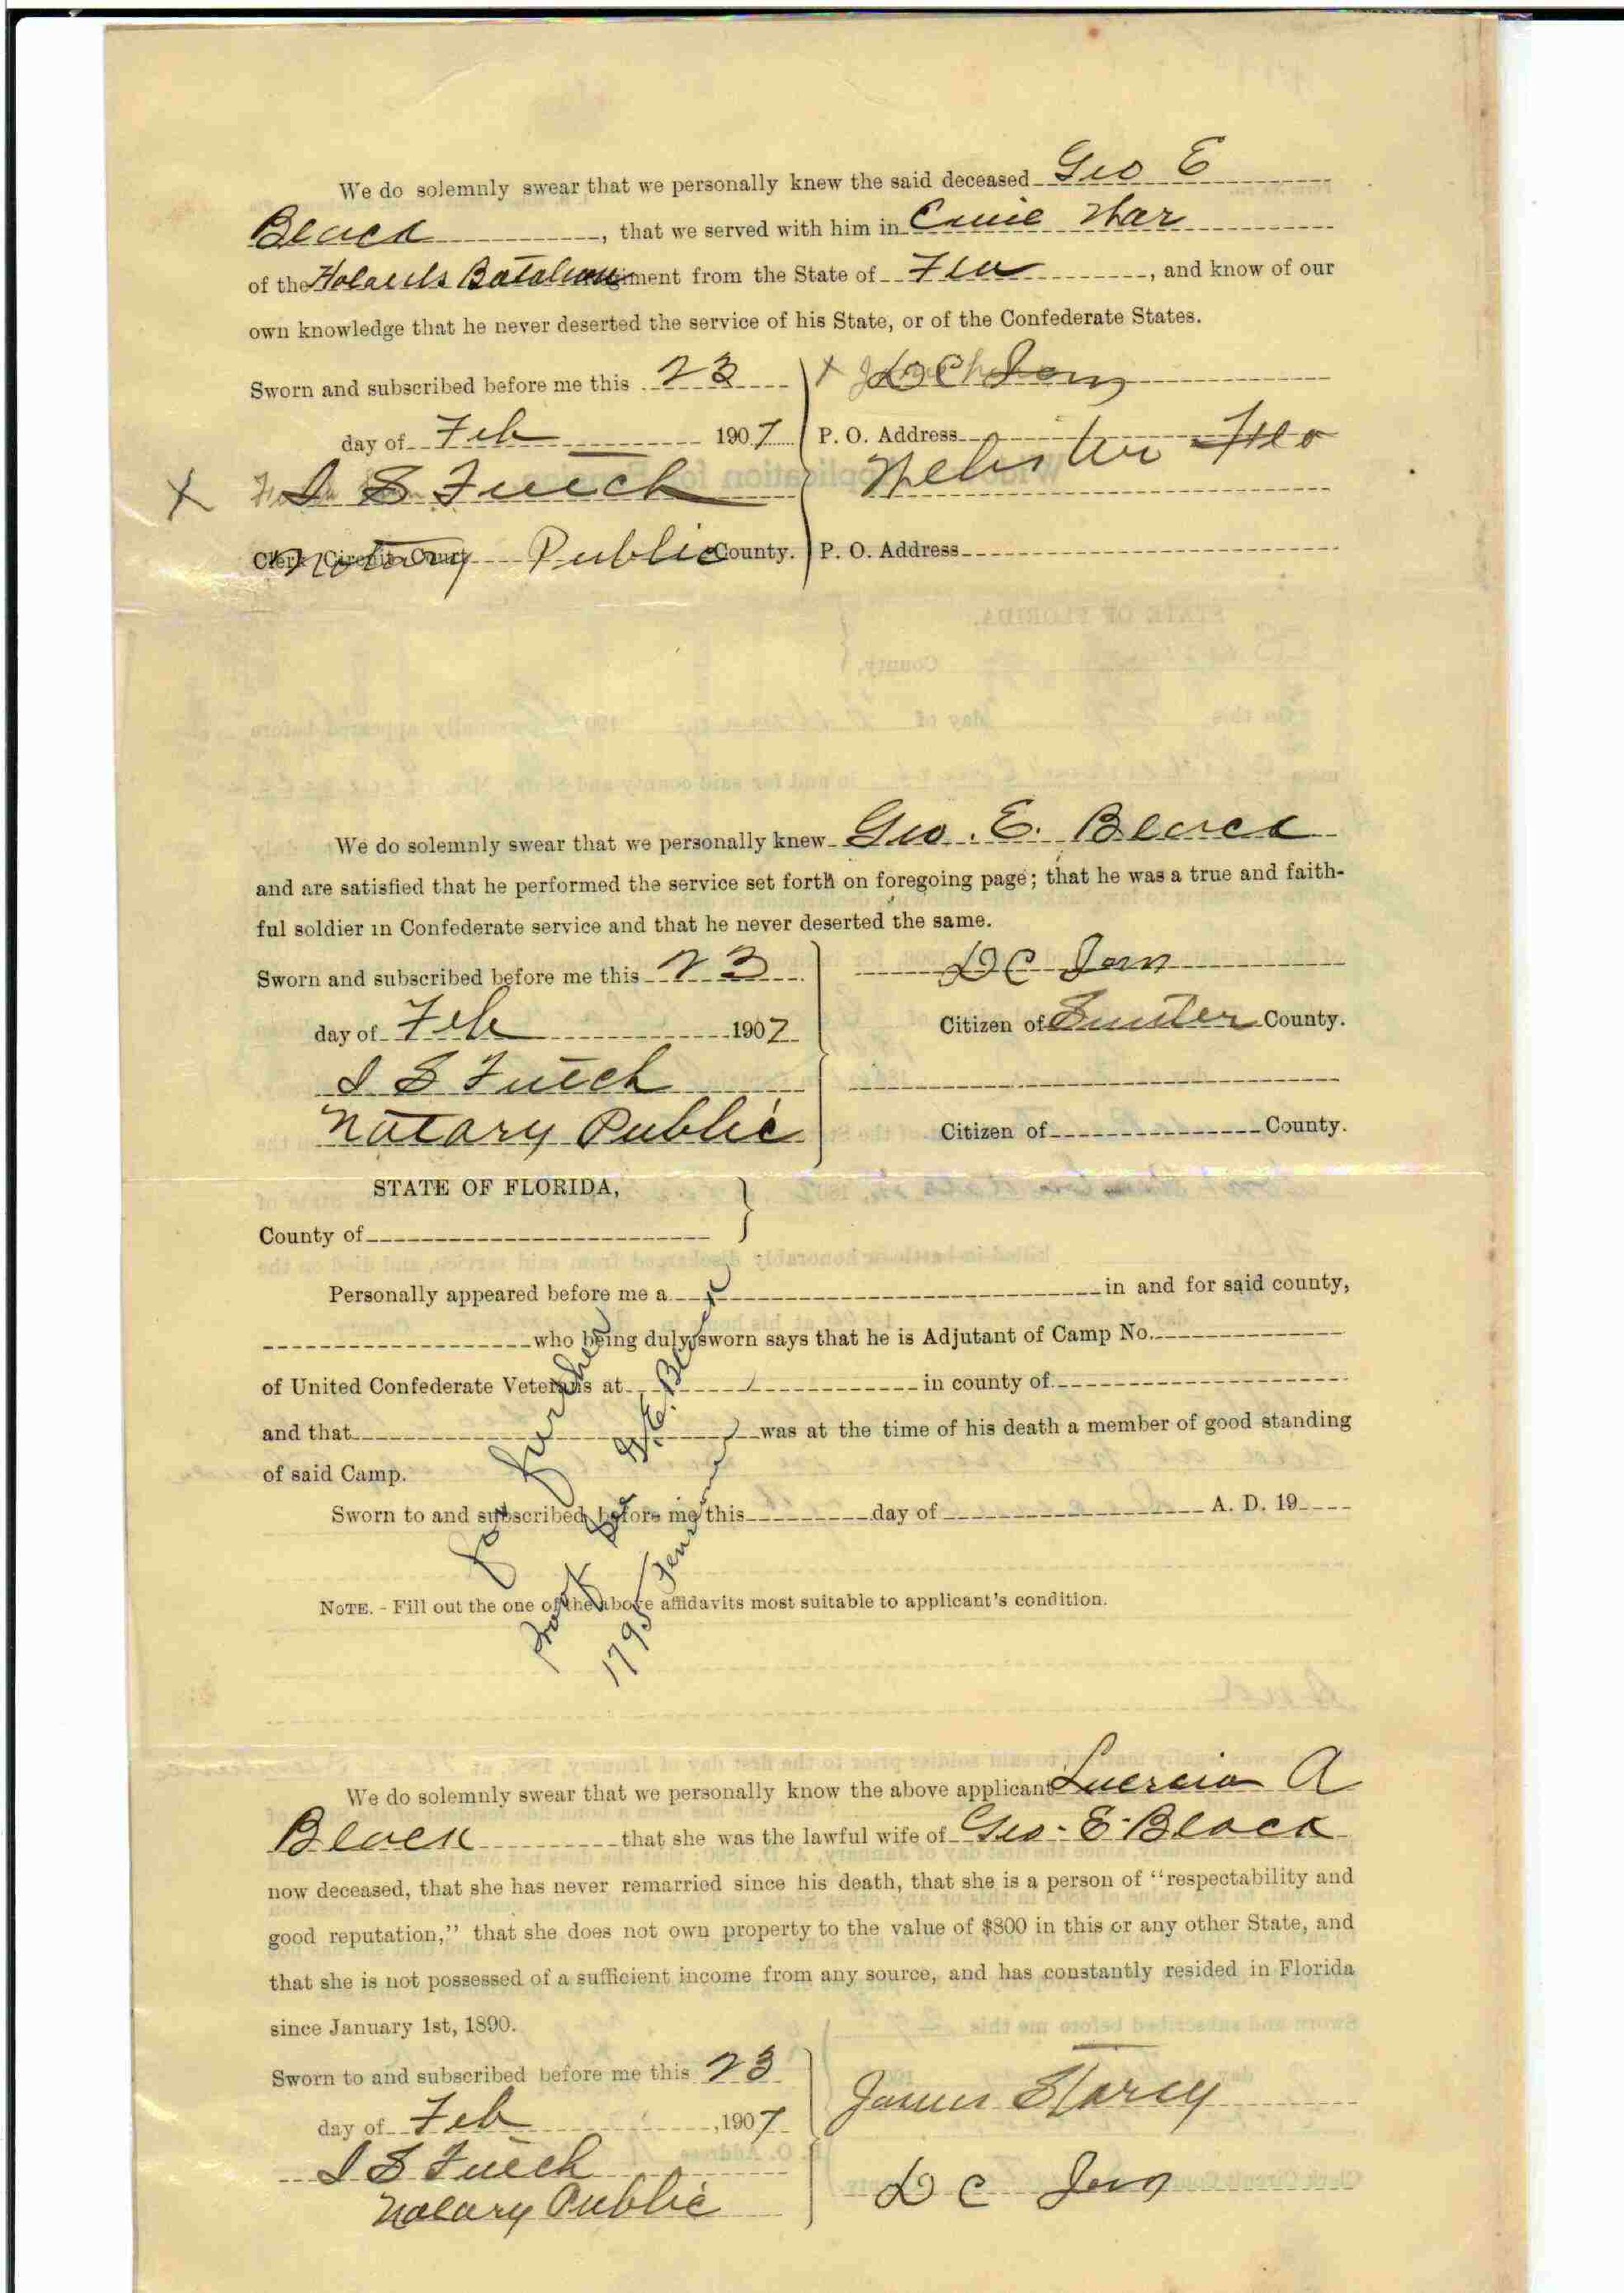 We do solemnly swear that we personally knew the said deceased Geo E
Black, that we served with him in Civil War
of the Holands Batalion iment from the State of Fla, and know of our
own knowledge that he never deserted the service of his State, or of the Confederate States.
Sworn and subscribed before me this 23 X D C
day of Feb 1907 P. O. Address
X I S Futch Webster Fla
Clerk Circuit Court Notary Public County. P. O. Address
We do solemnly swear that we personally knew Geo. E. Black
and are satisfied that he performed the service set forth on foregoing page; that he was a true and faith-
ful soldier in Confederate service and that he never deserted the same.
Sworn and subscribed before me this 23 D C
day of Feb 1907 Citizen of Sumter County.
I S Futch
Notary Public Citizen of County.
STATE OF FLORIDA,
County of
Personally appeared before me a in and for said county,
who being duly sworn says that he is Adjutant of Camp No.
of United Confederate Veterans at in county of
and that was at the time of his death a member of good standing
of said Camp.
Sworn to and subscribed before me this day of A. D. 19
for further
proof see G. E. Black
1795
NOTE. - Fill out the one of the above affidavits most suitable to applicant's condition.
We do solemnly swear that we personally know the above applicant Lucrcia A
Black that she was the lawful wife of Geo. E. Black
now deceased, that she has never remarried since his death, that she is a person of "respectability and
good reputation," that she does not own property to the value of $800 in this or any other State, and
that she is not possessed of a sufficient income from any source, and has constantly resided in Florida
since January 1st, 1890.
Sworn to and subscribed before me this 23
day of Feb, 1907 James Starcy
I S Futch
Notary Public D C